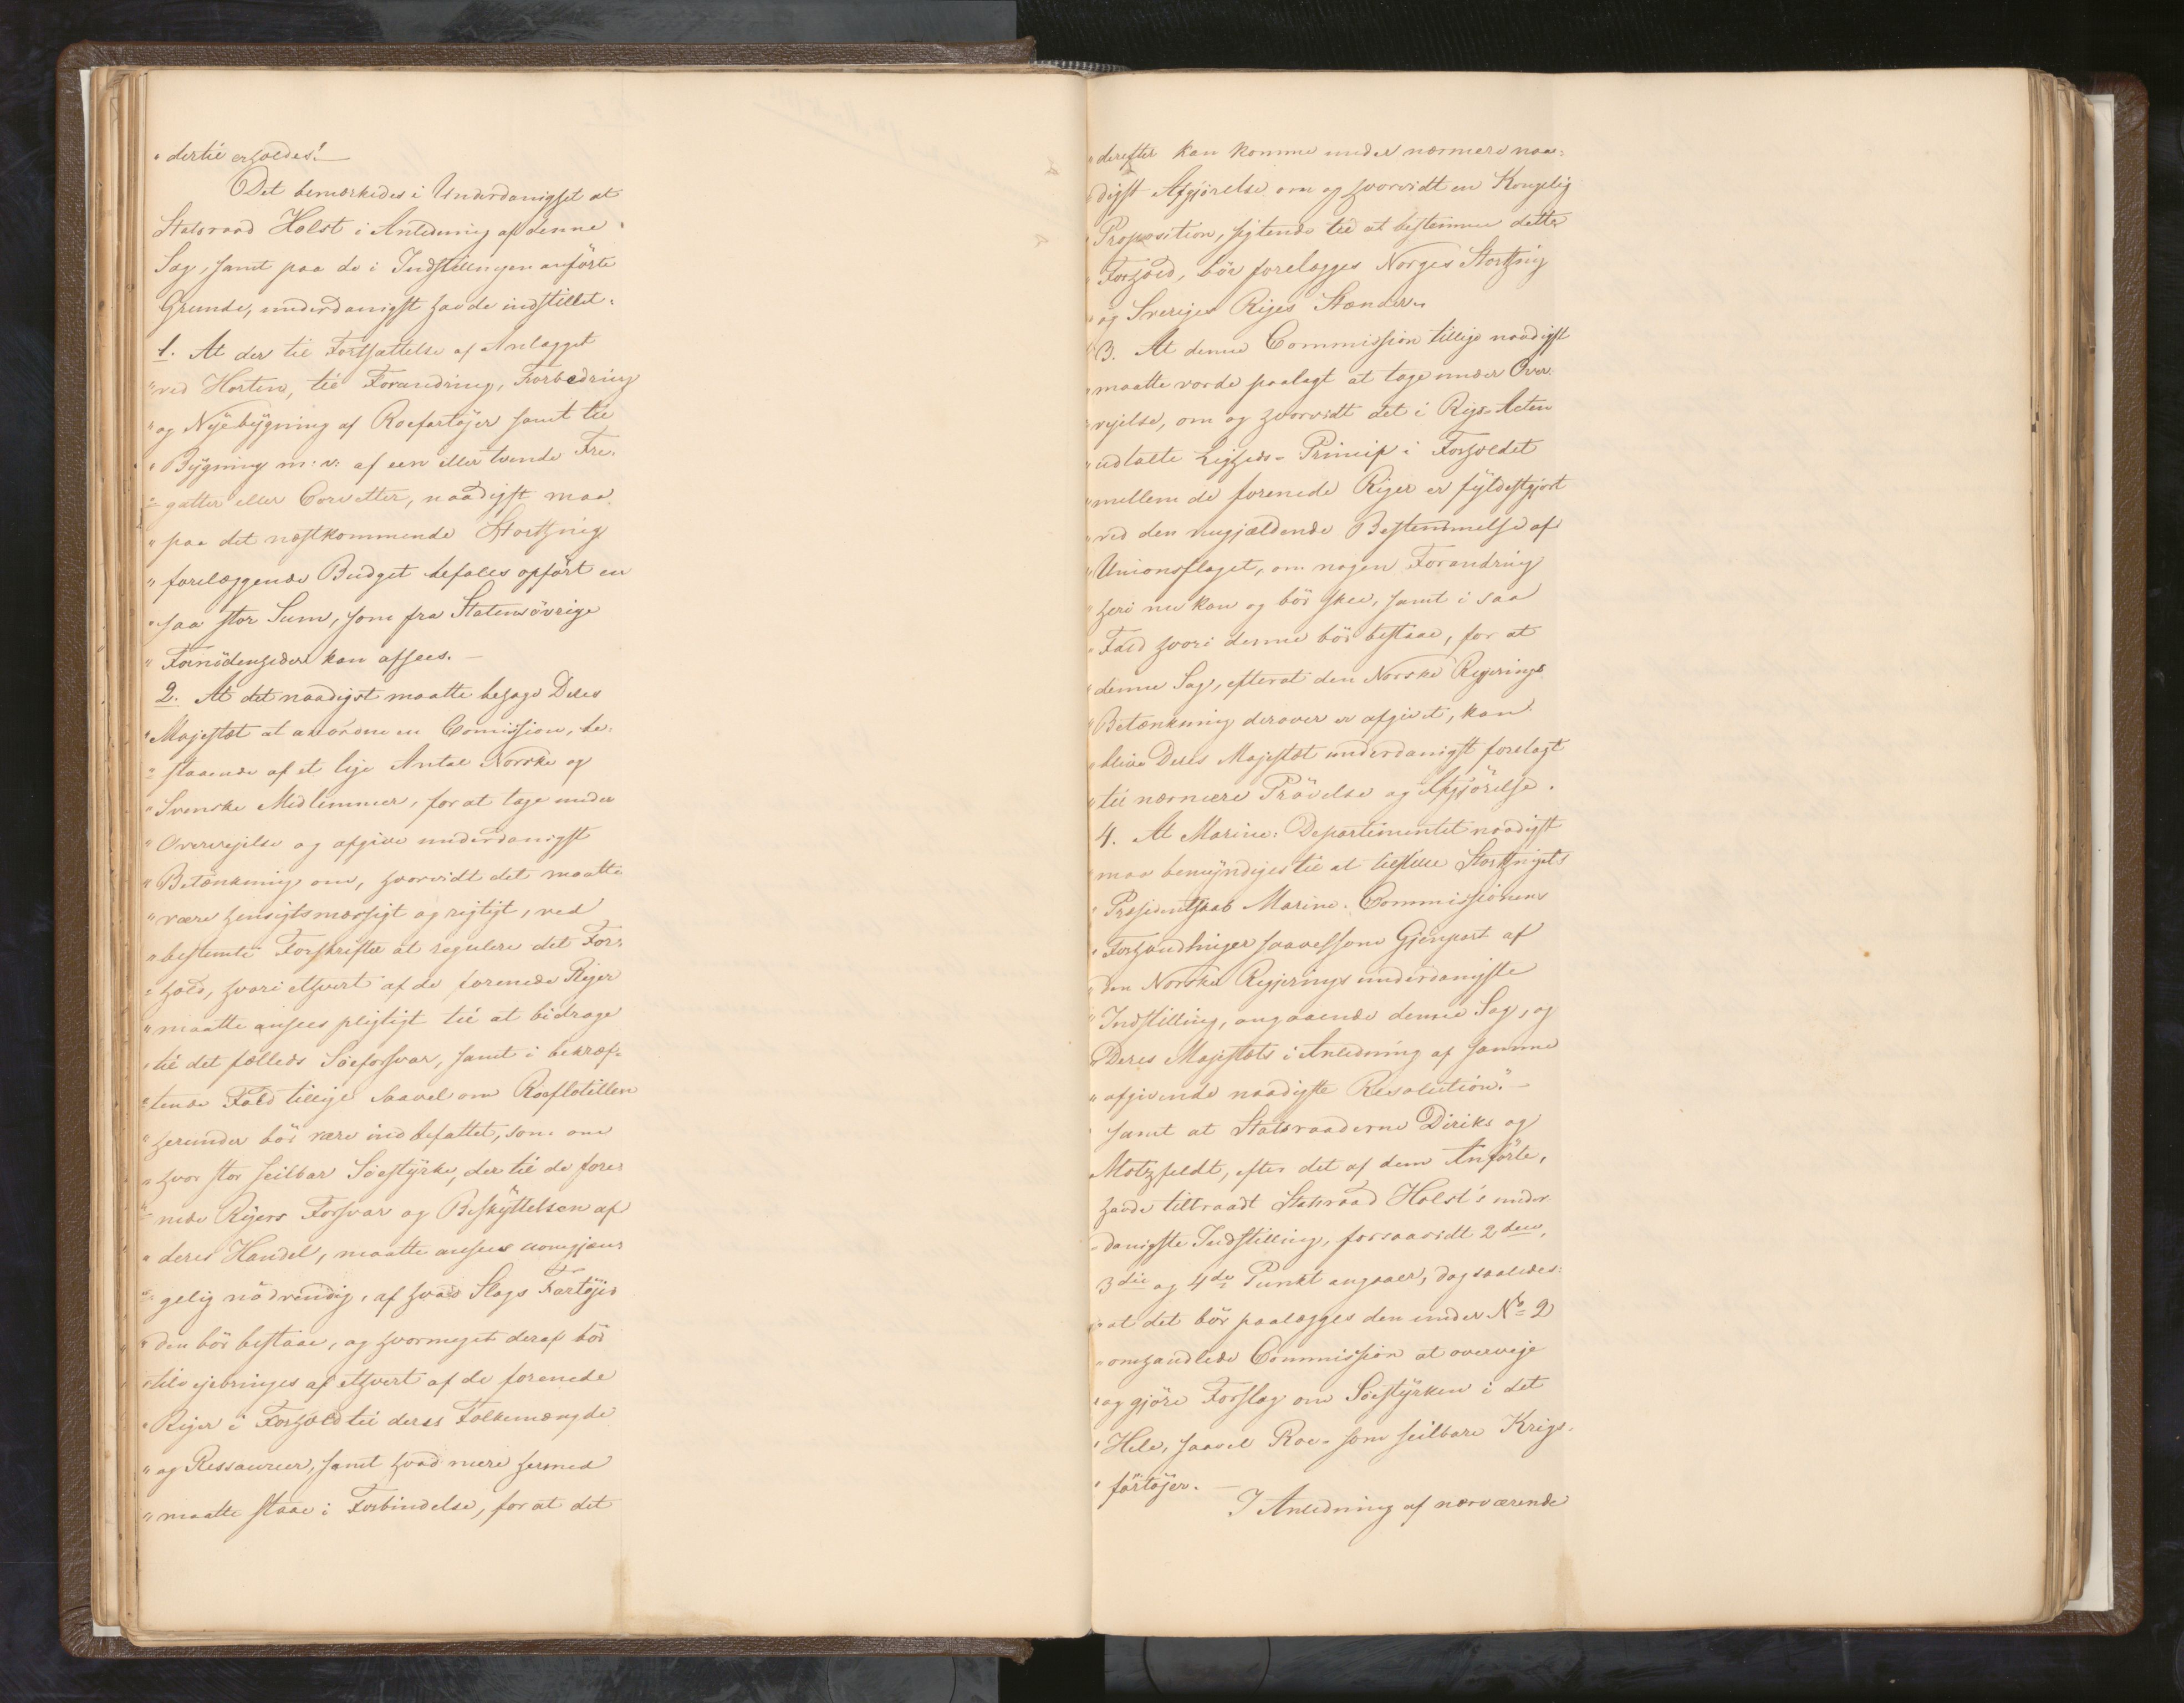 „dertil erholdes.“ —
Det bemærkedes i Underdanighet at
Statsraad Holst i Anledning af denne
Sag, samt paa de i Indstillingen anførte
Grunde, underdanigst havde indstillet:
1. At der til Fortsættelse af Anlægget
„ved Horten, til Forandring, Forbedring
„og Nÿebÿgning af Roefartøjer samt til
„Bÿgning m: v: af een eller tvende Fre-
„gatter eller Corvetter, naadigst maa
„paa det næstkommende Storthing
„forelæggende Budget befales opført en
„saa stor Sum, som fra Statens øvrige
„Fornødenheder kan afsees. —
2. At det naadigst maatte behage Deres
„Majestæt at anordne en Comission, be-
„staaende af et lige Antal Norske og
„Svenske Medlemmer, for at tage under
„Overvejelse og afgive underdanigst
„Betænkning om, hvorvidt det maatte
„være hensigtsmæssigt og rigtigt, ved
„bestemte Forskrifter at regulere det For-
„hold, hvori ethvert af de forenede Riger
„maatte ansees pligtigt til at bidrage
„til det fælleds Søeforsvar, samt i bekræf-
„tende Fald tillige saavel om Roeflotillen
„herunder bør være indbefattet, som om
„hvor stor seilbar Søestÿrke, der til de fore-
„nede Rigers Forsvar og Beskÿttelsen af
„deres Handel, maatte ansees uomgjæn-
„gelig nødvendig, af hvad Slags Fartøjer
„den bør bestaae, og hvormeget deraf bør
„tilvejebringes af ethvert af de forenede
„Riger i Forhold til deres Folkemængde
„og Ressourcer, samt hvad mere hermed
„maatte staae i Forbindelse, for at det
„derefter kan komme under nærmere naa-
„digst Afgjørelse om og hvorvidt en Kongelig
„Proposition, sigtende til at bestemme dette
„Forhold, bør forelægges Norges Storthing
„og Sveriges Riges Stænder.
„3. At denne Commission tillige naadigst
„maatte vorde paalagt at tage under Over-
„vejelse, om og hvorvidt det i Rigs-Acten
„udtalte Ligheds-Princip i Forholdet
„mellem de forenede Riger er fÿldestgjort
„ved den nugjældende Bestemmelse af
„Unionsflaget, om nogen Forandring
„heri nu kan og bør skee, samt i saa
„Fald hvori denne bør bestaae, for at
„denne Sag, efterat den Norske Regjerings
„Betænkning derover er afgivet, kan
„blive Deres Majestæt underdanigst forelagt
„til nærmere Prøvelse og Afgjørelse.
4. At Marine-Departementet naadigst
„maa bemÿndiges til at tilstille Storthingets
„Præsidentskab Marine-Commissionens
„Forhandlinger saavelsom Gjenpart af
„den Norske Regjerings underdanigste
„Indstilling, angaaende denne Sag, og
„Deres Majestæts i Anledning af samme
„afgivende naadigste Resolution.“ —
samt at Statsraaderne Diriks og
Motzfeldt, efter det af dem Anførte,
havde tiltraadt Statsraad Holst's under-
danigste Indstilling, forsaavidt 2den,
3die og 4de Punkt angaaer, dog saaledes:
„at det bør paalægges den under No 2
„omhandlede Commission at overveje
„og gjøre Forslag om Søestÿrken i det
„Hele, saavel Roe- som seilbare Krigs-
„fartøjer. —
I Anledning af nærværende